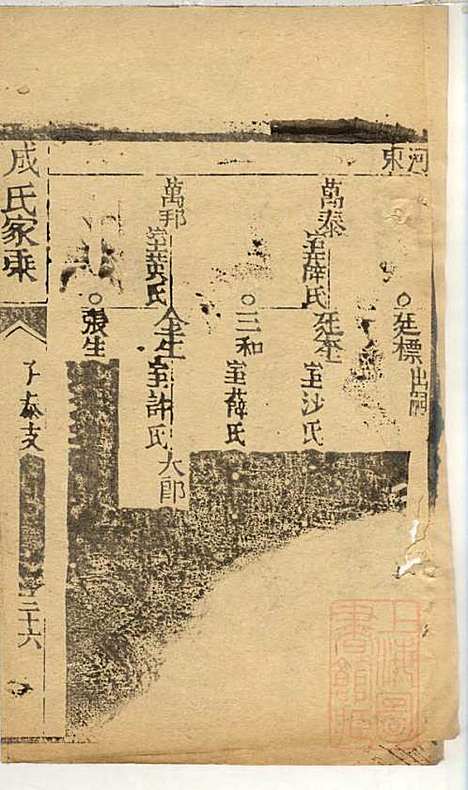 河東
廷標出嗣
萬泰室薛氏
廷
室沙氏
三和室薛氏
萬邦室黄氏
全生室許氏
大郎
張生
成氏家乘
子泰支
二十六
上海圖書館